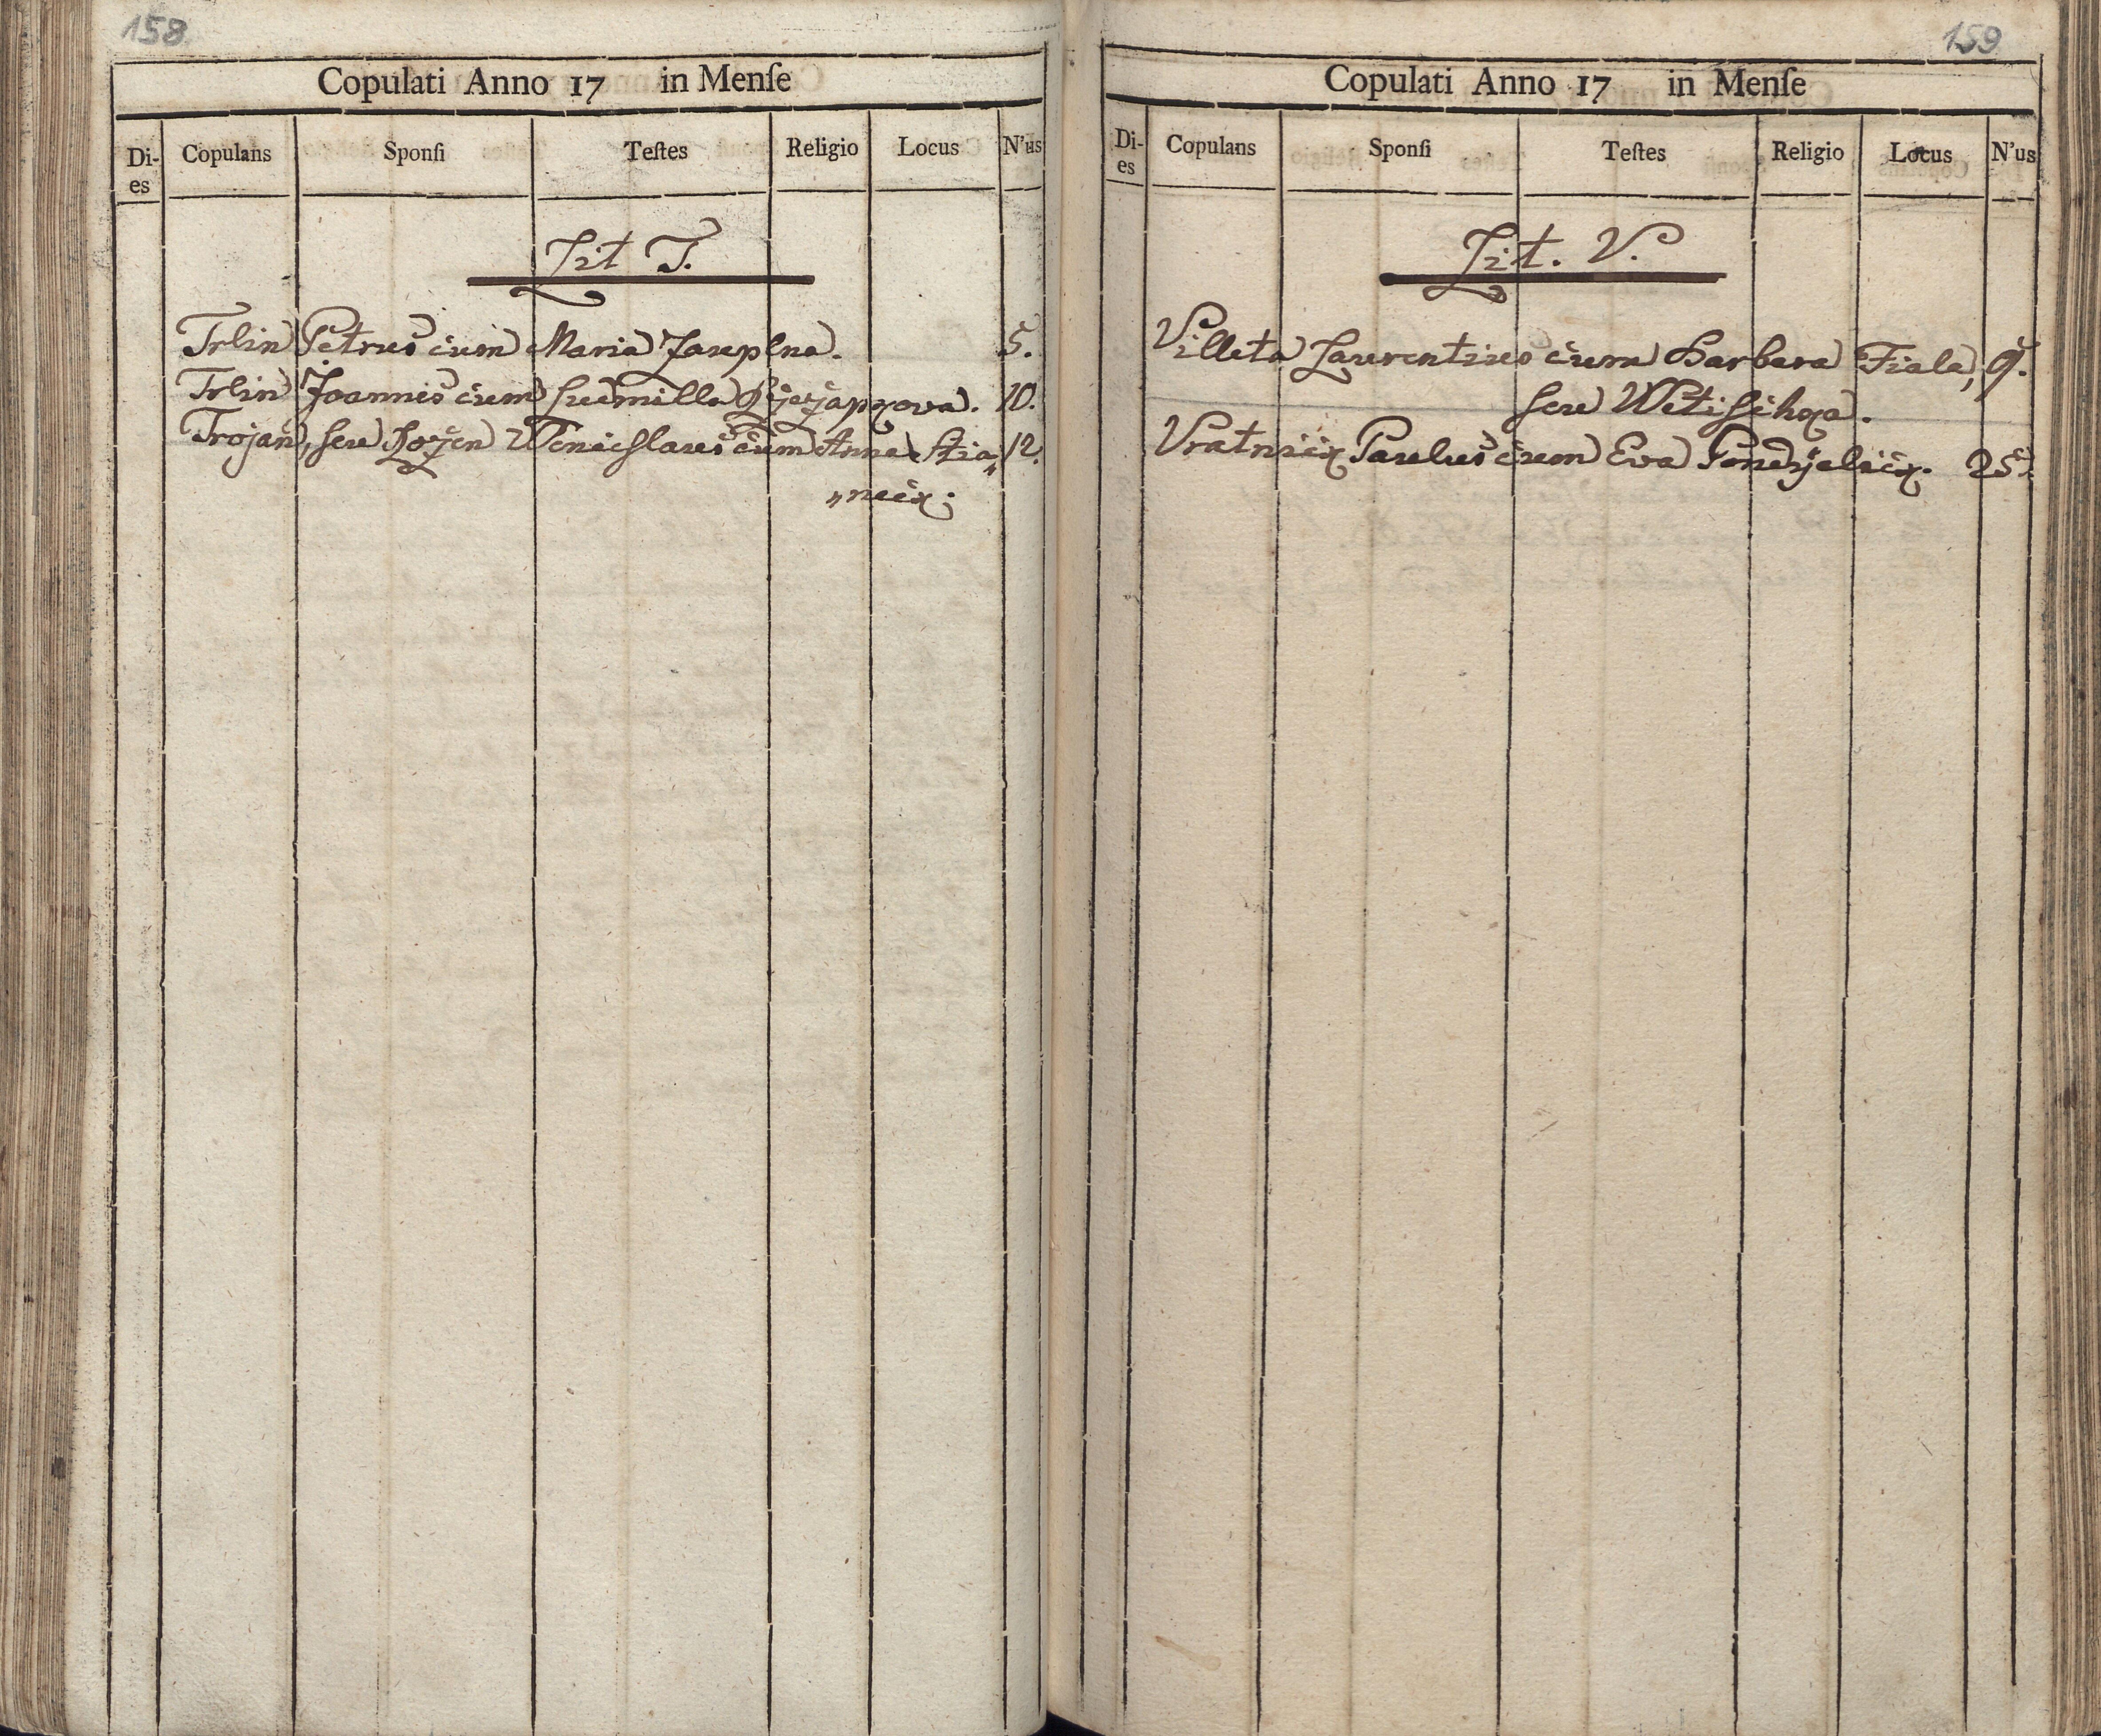 158
Copulati Anno 17 in Menſe
Di-es Copulans Sponſi Teſtes Religio Locus N'us
Lit T.
Trlin Petrus cum Maria 5.
Trlin Joannis cum Ludmilla 10.
Trojan, seu Wenceslaus cum Anna Stia„ 12.
„necz.
159
Copulati Anno 17 in Menſe
Di-es Copulans Sponſi Teſtes Religio Locus N'us
Lit. V.
Villeta Laurentius cum Barbara Fiala, 9.
seu
Vratnicz Paulus cum Eva Pondzielicz. 25.